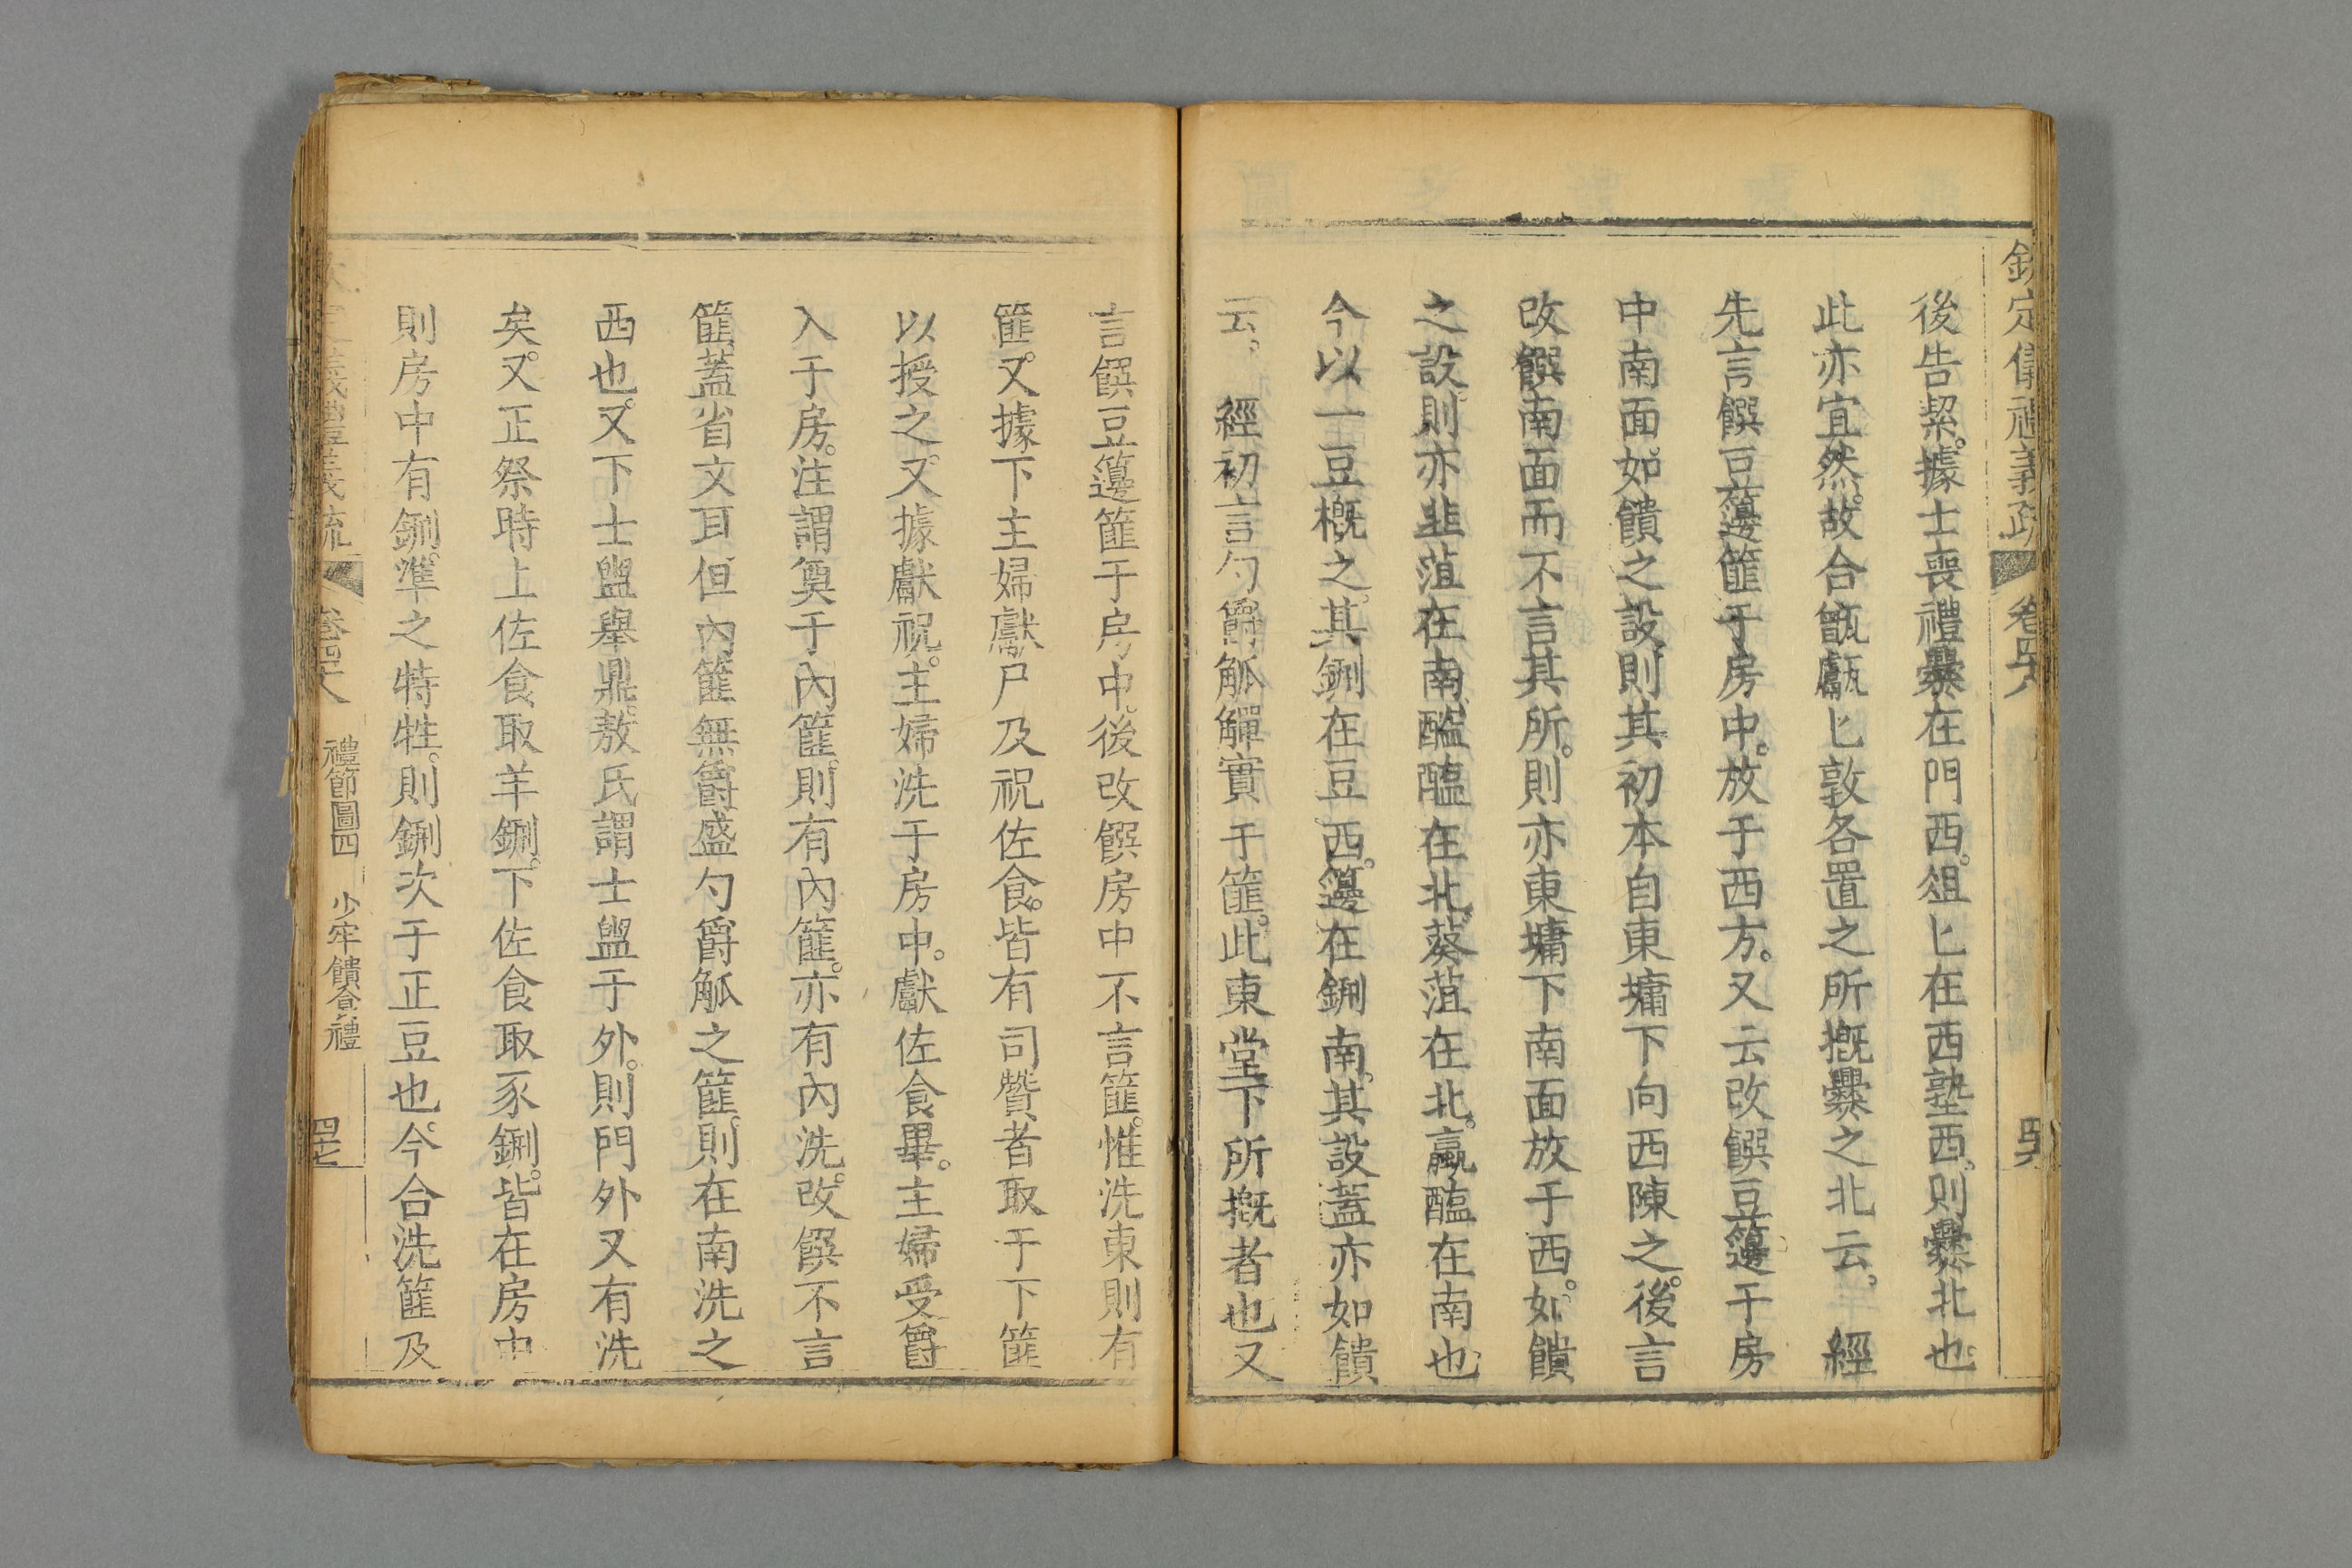 欽定儀禮義疏 卷四十八 四六
後告絜。據士喪禮爨在門西。俎匕在西塾西。則爨北也。
此亦宜然。故合甑甗匕敦各置之所摡爨之北云。 經
先言饌豆籩篚于房中。放于西方。又云改饌豆籩于房
中南面。如饋之設。則其初本自東墉下向西陳之。後言
改饌南面而不言其所。則亦東墉下南面放于西。如饋
之設。則亦韭菹在南。醓醢在北。葵菹在北。蠃醢在南也。
今以一豆概之。其鉶在豆西。籩在鉶南。其設蓋亦如饋
云。 經初言勺爵觚觶實于篚。此東堂下所摡者也又
言饌豆籩篚于房中。後改饌房中不言篚。惟洗東則有
篚。又據下主婦獻尸及祝佐食。皆有司贊者取于下篚
以授之。又據獻祝。主婦洗于房中。獻佐食畢。主婦受爵
入于房。注謂奠于內篚。則有內篚。亦有內洗。改饌不言
篚。蓋省文耳但內篚無爵盛勺爵觚之篚。則在南洗之
西也。又下士盥舉鼎。敖氏謂士盥于外。則門外又有洗
矣。又正祭時上佐食取羊鉶。下佐食取豕鉶。皆在房中
則房中有鉶。準之特牲。則鉶次于正豆也。今合洗篚及
義禮義疏 卷四十八 禮節圖四 少牢饋食禮 四七